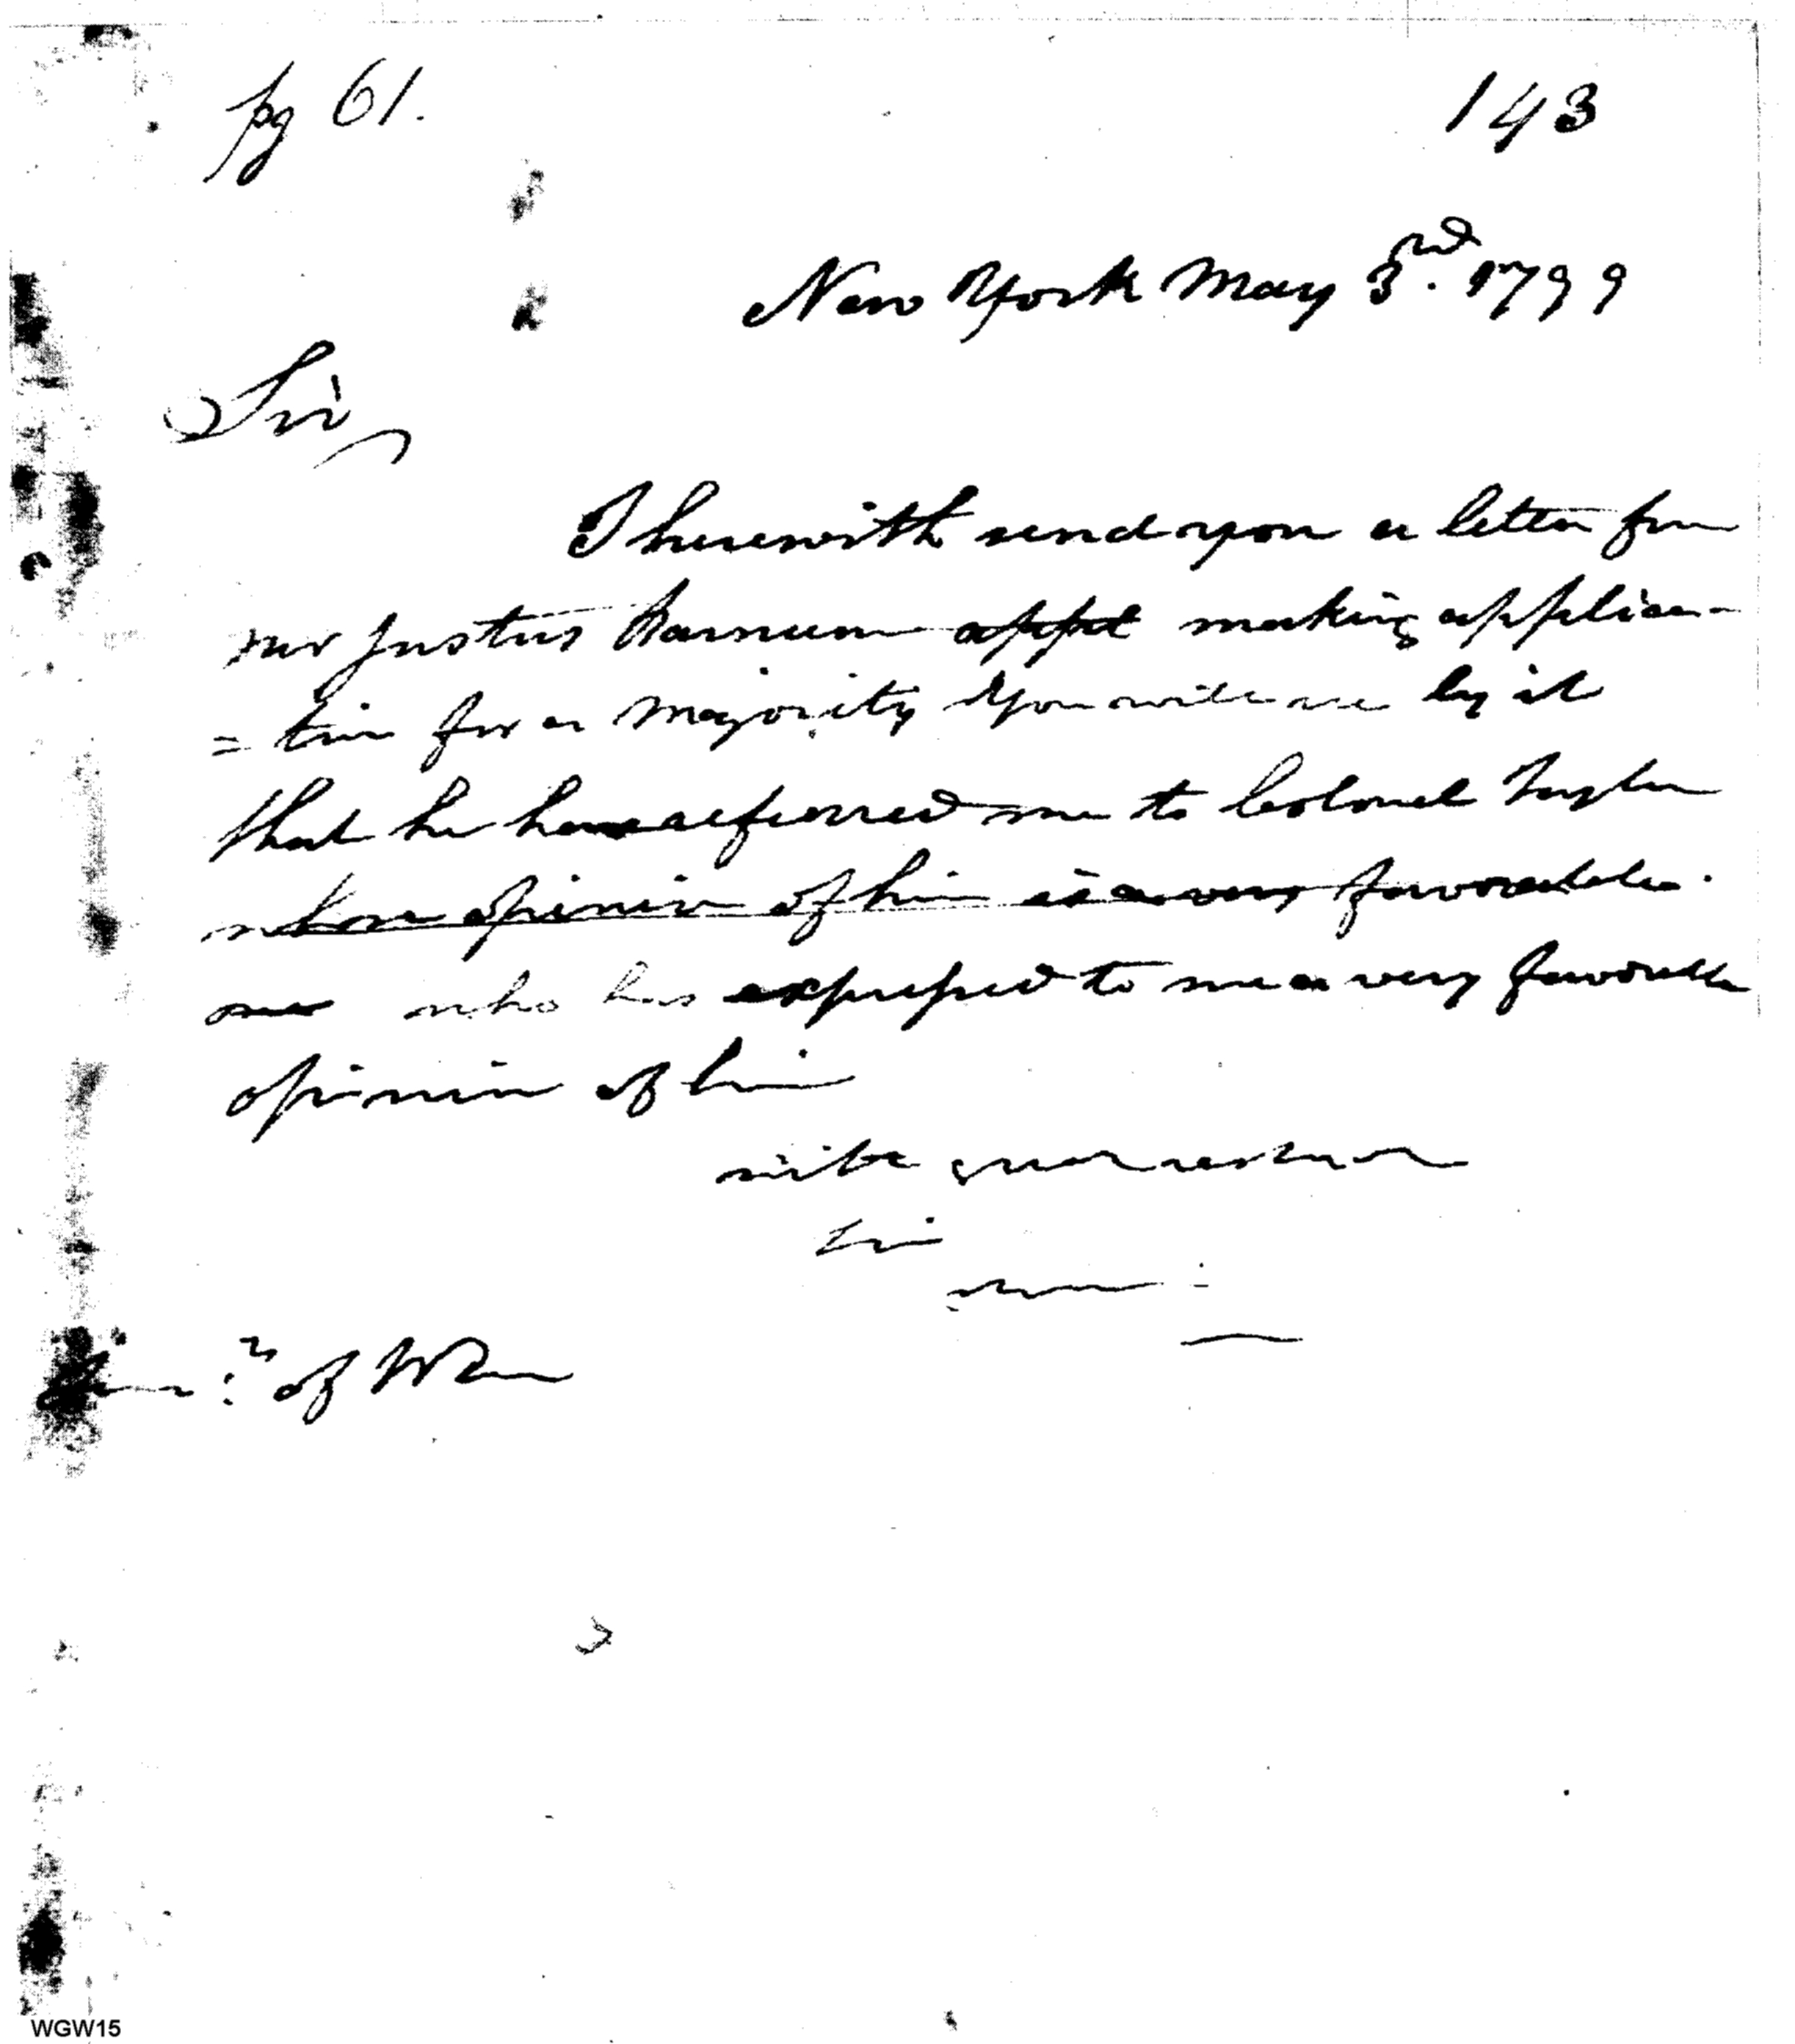 pg 61.
143
New York May 3rd. 1799
Sir,
I herewith send you a letter from
Mr Justus Barnum appt making applica-
= tion for a Majority You will see by it
that he has referred me to Colonel Taylor
whose opinion of him is a very favorable.
who has expressed to me a very favorable
opinion of him
with great respect
Sir
of War
WGW15